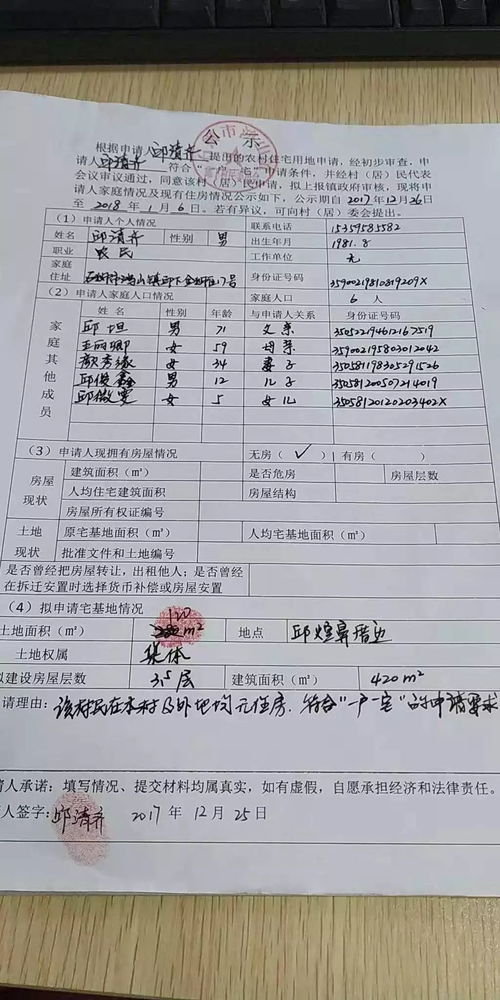 根据申请人邱清齐提出的农村住宅用地申请，经初步审查，申
请人邱清齐符合“一户一宅”申请条件，并经村（居）民代表
会议审议通过，同意该村（居）民申请，拟上报镇政府审核，现将申
请人家庭情况及现有住房情况公示如下，公示期自2017年12月26日
至2018年1月6日。若有异议，可向村（居）委会提出。
（1）申请人个人情况 联系电话 15359583582
姓名 邱清齐 性别 男 出生年月 1981.8
职业 农民 工作单位 无
家庭住址 身份证号码 35900219810819209X
（2）申请人家庭人口情况 家庭人口 6人
家庭其他成员 姓名 性别 年龄 与申请人关系 身份证号码
邱坦 男 71 父亲 350522194612167519
王丽卿 女 59 母亲 359002195803012042
颜秀缘 女 34 妻子 350581198305291526
邱俊鑫 男 12 儿子 350581200507214019
邱微雯 女 5 女儿 35058120120203402X
（3）申请人现拥有房屋情况 无房（✓）|有房（ ）
房屋现状 建筑面积（㎡） 是否危房 房屋层数
人均住宅建筑面积 房屋结构
房屋所有权证编号
土地现状 原宅基地面积（㎡） 人均宅基地面积（㎡）
批准文件和土地编号
是否曾经把房屋转让，出租他人；是否曾经
在拆迁安置时选择货币补偿或房屋安置
（4）拟申请宅基地情况
土地面积（㎡） 120 m² 地点
土地权属 集体
拟建设房屋层数 3.5层 建筑面积（㎡） 420m²
请理由：该村民在本村及外地均无住房，符合“一户一宅”的申请要求
请人承诺：填写情况、提交材料均属真实，如有虚假，自愿承担经济和法律责任。
人签字：邱清齐 2017年12月25日